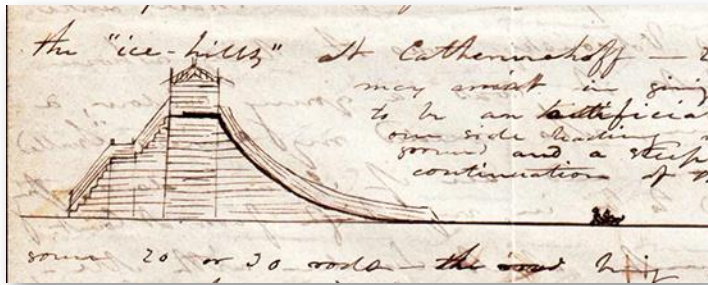 the "ice-hills" at Catherinehoff —
may assist in giving
to be an artificial
one side leading
and a steep
continuation of
some 20 or 30 rods — the